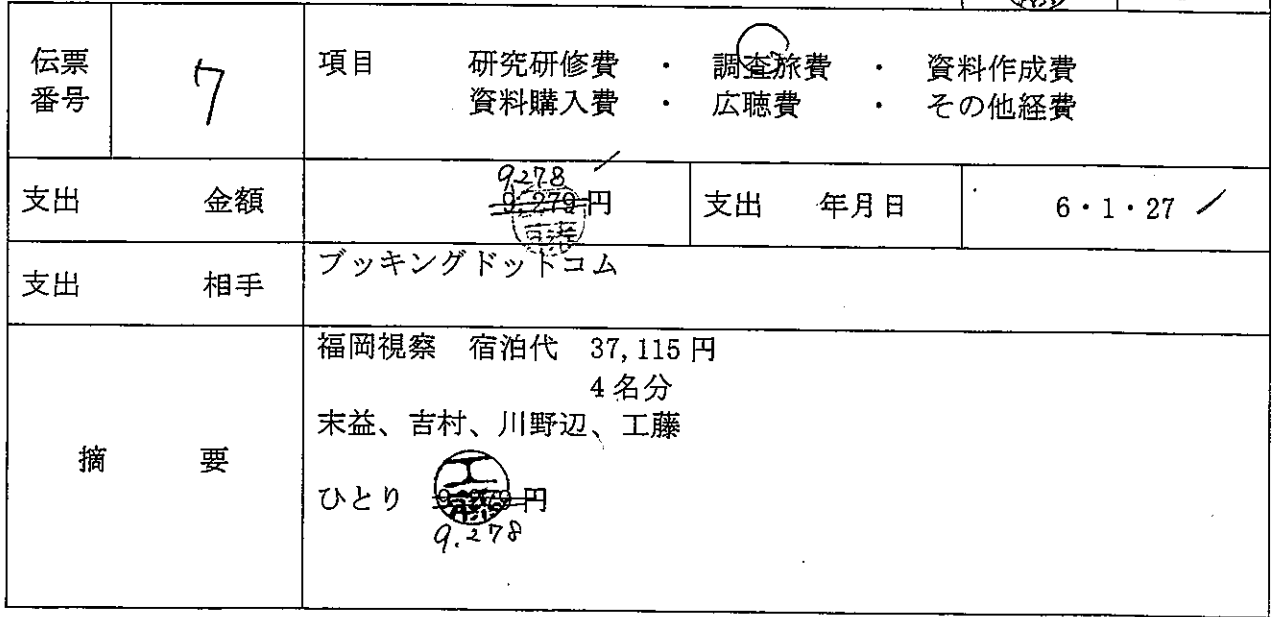 伝票
番号
7
項目 研究研修費 ・ 調査旅費 ・ 資料作成費
資料購入費 ・ 広聴費 ・ その他経費
支出 金額
9278
9,279円
支出 年月日
6・1・27
支出 相手
ブッキングドットコム
摘 要
福岡視察 宿泊代 37,115円
4名分
末益、吉村、川野辺、工藤
ひとり 9,279円
工藤
9.278